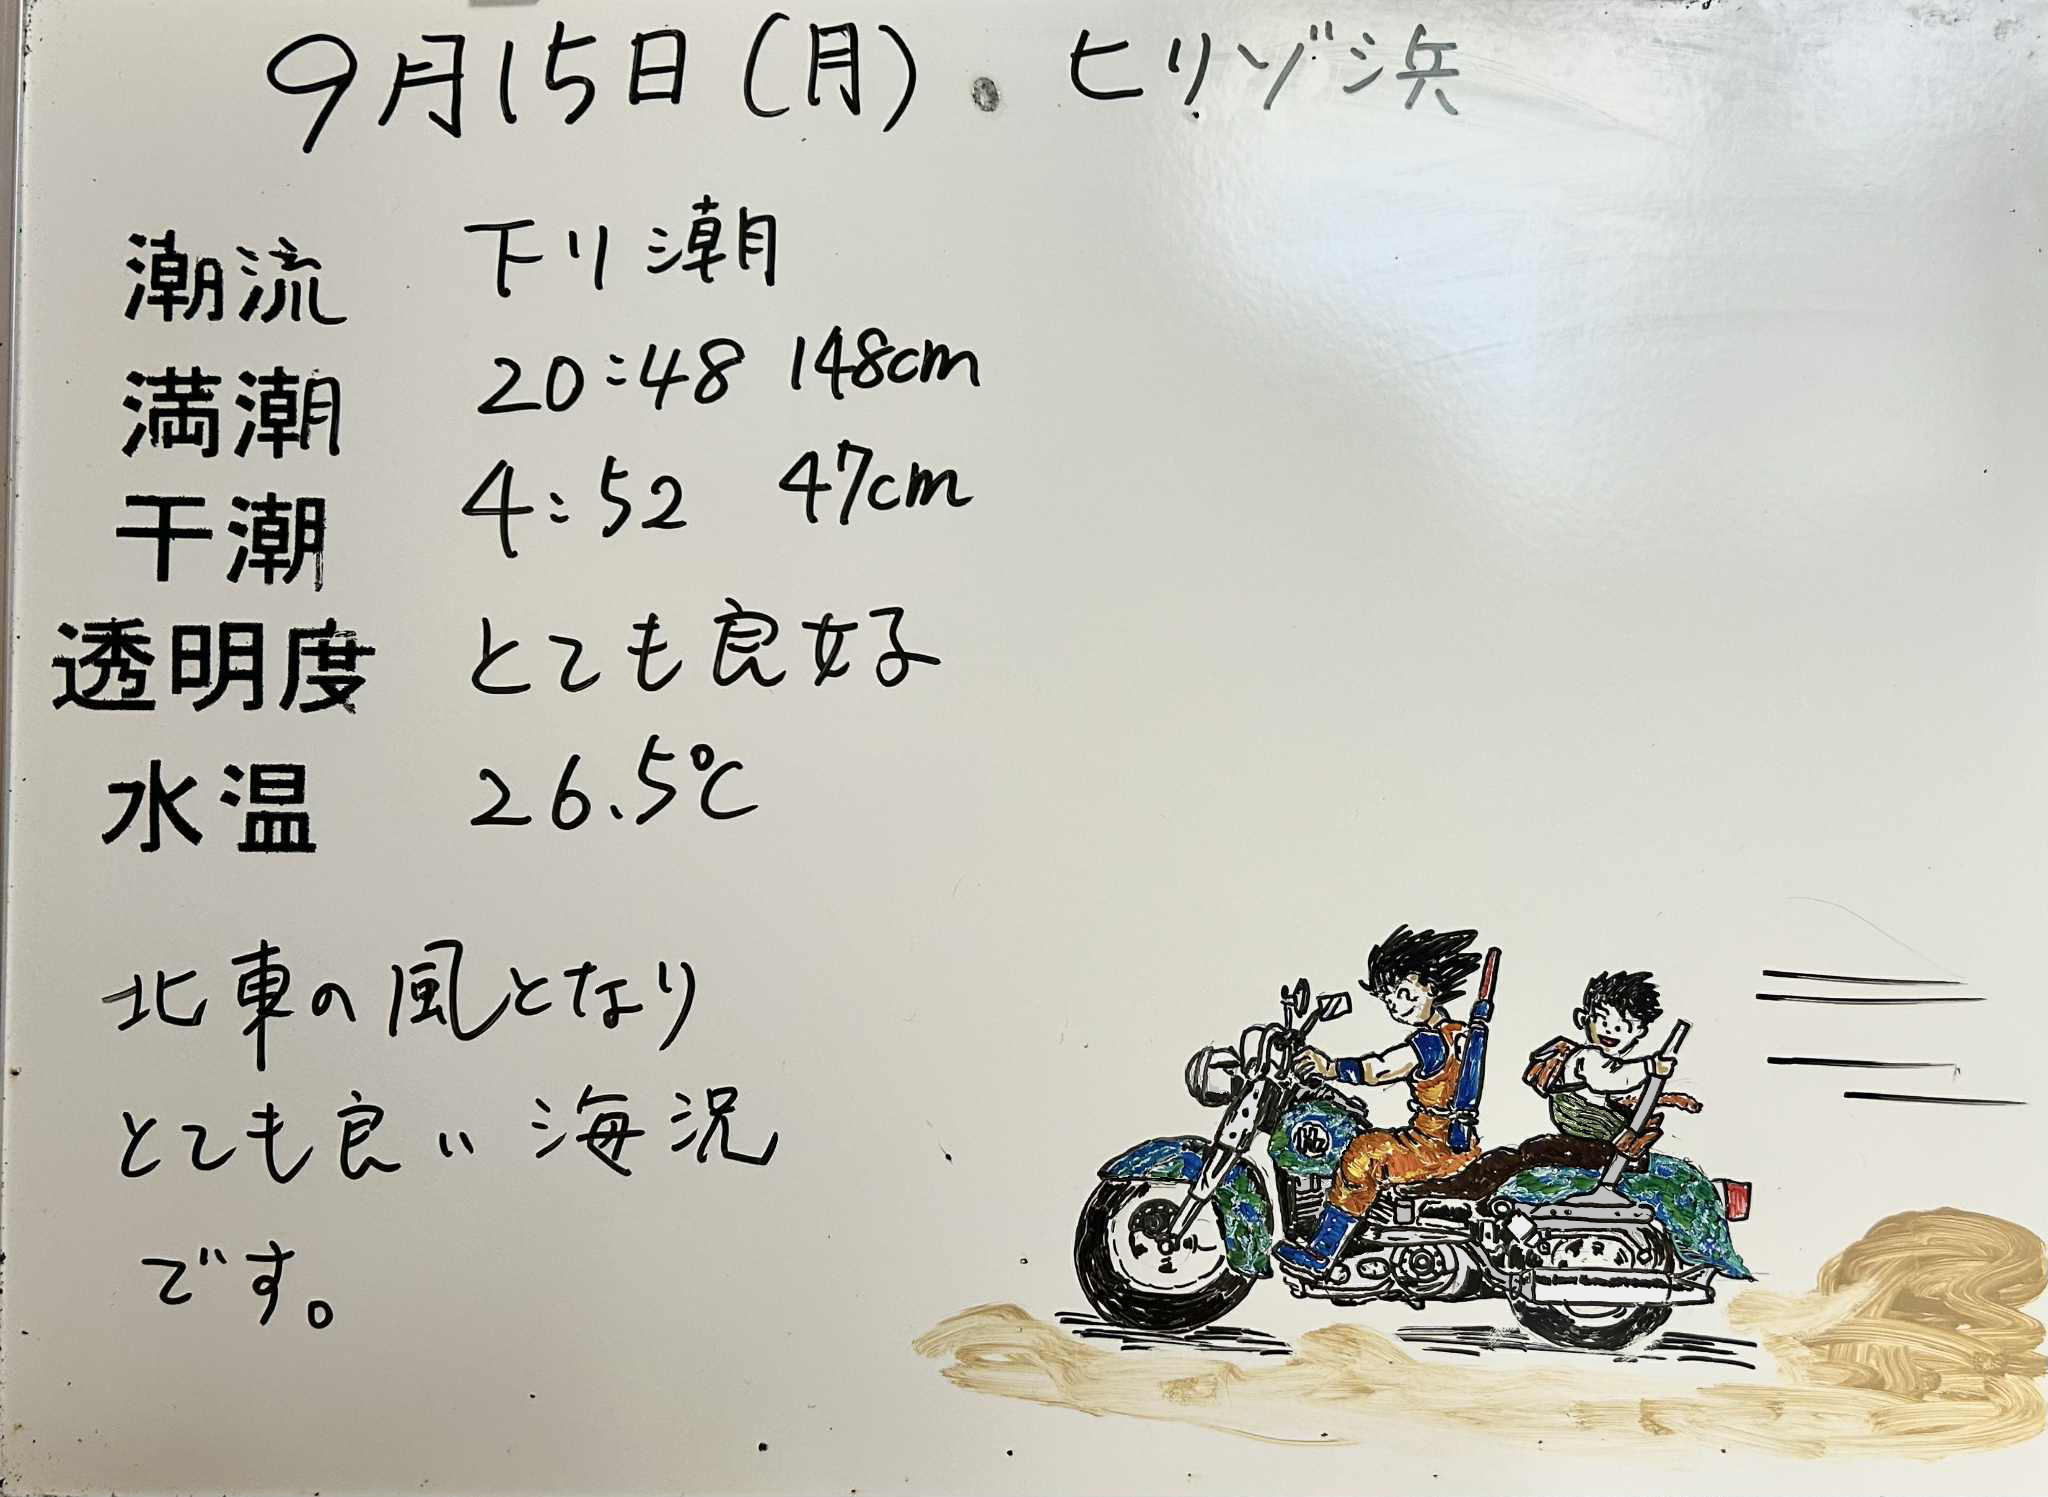 9月15日(月). ヒリゾ浜
潮流 下り潮
満潮 20:48 148cm
干潮 4:52 47cm
透明度 とても良好
水温 26.5℃
北東の風となり
とても良い海況
です。